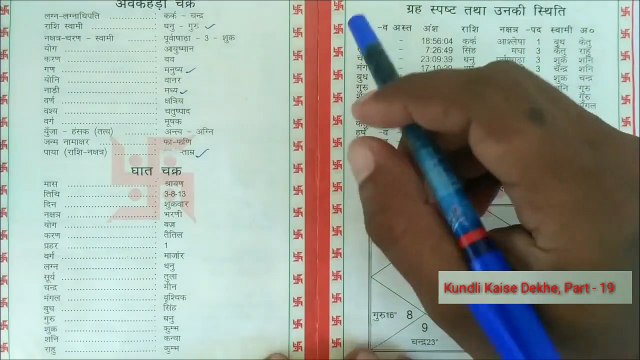 अवकहड़ा चक्र
लग्न-लग्नाधिपति ............ कर्क - चन्द्र
राशि स्वामी ............ धनु - गुरु
नक्षत्र-चरण - स्वामी ............ पूर्वाषाढा - 3 - शुक्र
योग ............ आयुष्मान
करण ............ बव
गण ............ मनुष्य
योनि ............ वानर
नाडी ............ मध्य
वर्ण ............ क्षत्रिय
वश्य ............ चतुष्पाद
वर्ग ............ मूषक
युँजा - हंसक (तत्व) ............ अन्त्य - अग्नि
जन्म नामाक्षर ............ फा-फणि
पाया (राशि-नक्षत्र) ............ ताम्र
घात चक्र
मास ............ श्रावण
तिथि ............ 3-8-13
दिन ............ शुक्रवार
नक्षत्र ............ भरणी
योग ............ वज्र
करण ............ तैतिल
प्रहर ............ 1
वर्ग ............ मार्जार
लग्न ............ धनु
सूर्य ............ तुला
चन्द्र ............ मीन
मंगल ............ वृश्चिक
बुध ............ सिंह
गुरु ............ धनु
शुक्र ............ कुम्भ
शनि ............ कन्या
राहु ............ कुम्भ
ग्रह स्पष्ट तथा उनकी स्थिति
-व अस्त अंश राशि नक्षत्र -पद स्वामी अ०
- 18:56:04 कर्क आश्लेषा 1 बुध केतु
- 7:26:49 सिंह मघा 3 केतु राहु
- 23:09:39 धनु पूर्वाषाढा 3 शुक्र शनि
मंग 3 चन्द्र शनि
बुध शुक्र शनि
गुरु शनि गुरु
हर्ष -व
गुरु16° 8
9
चन्द्र23°
Kundli Kaise Dekhe, Part - 19